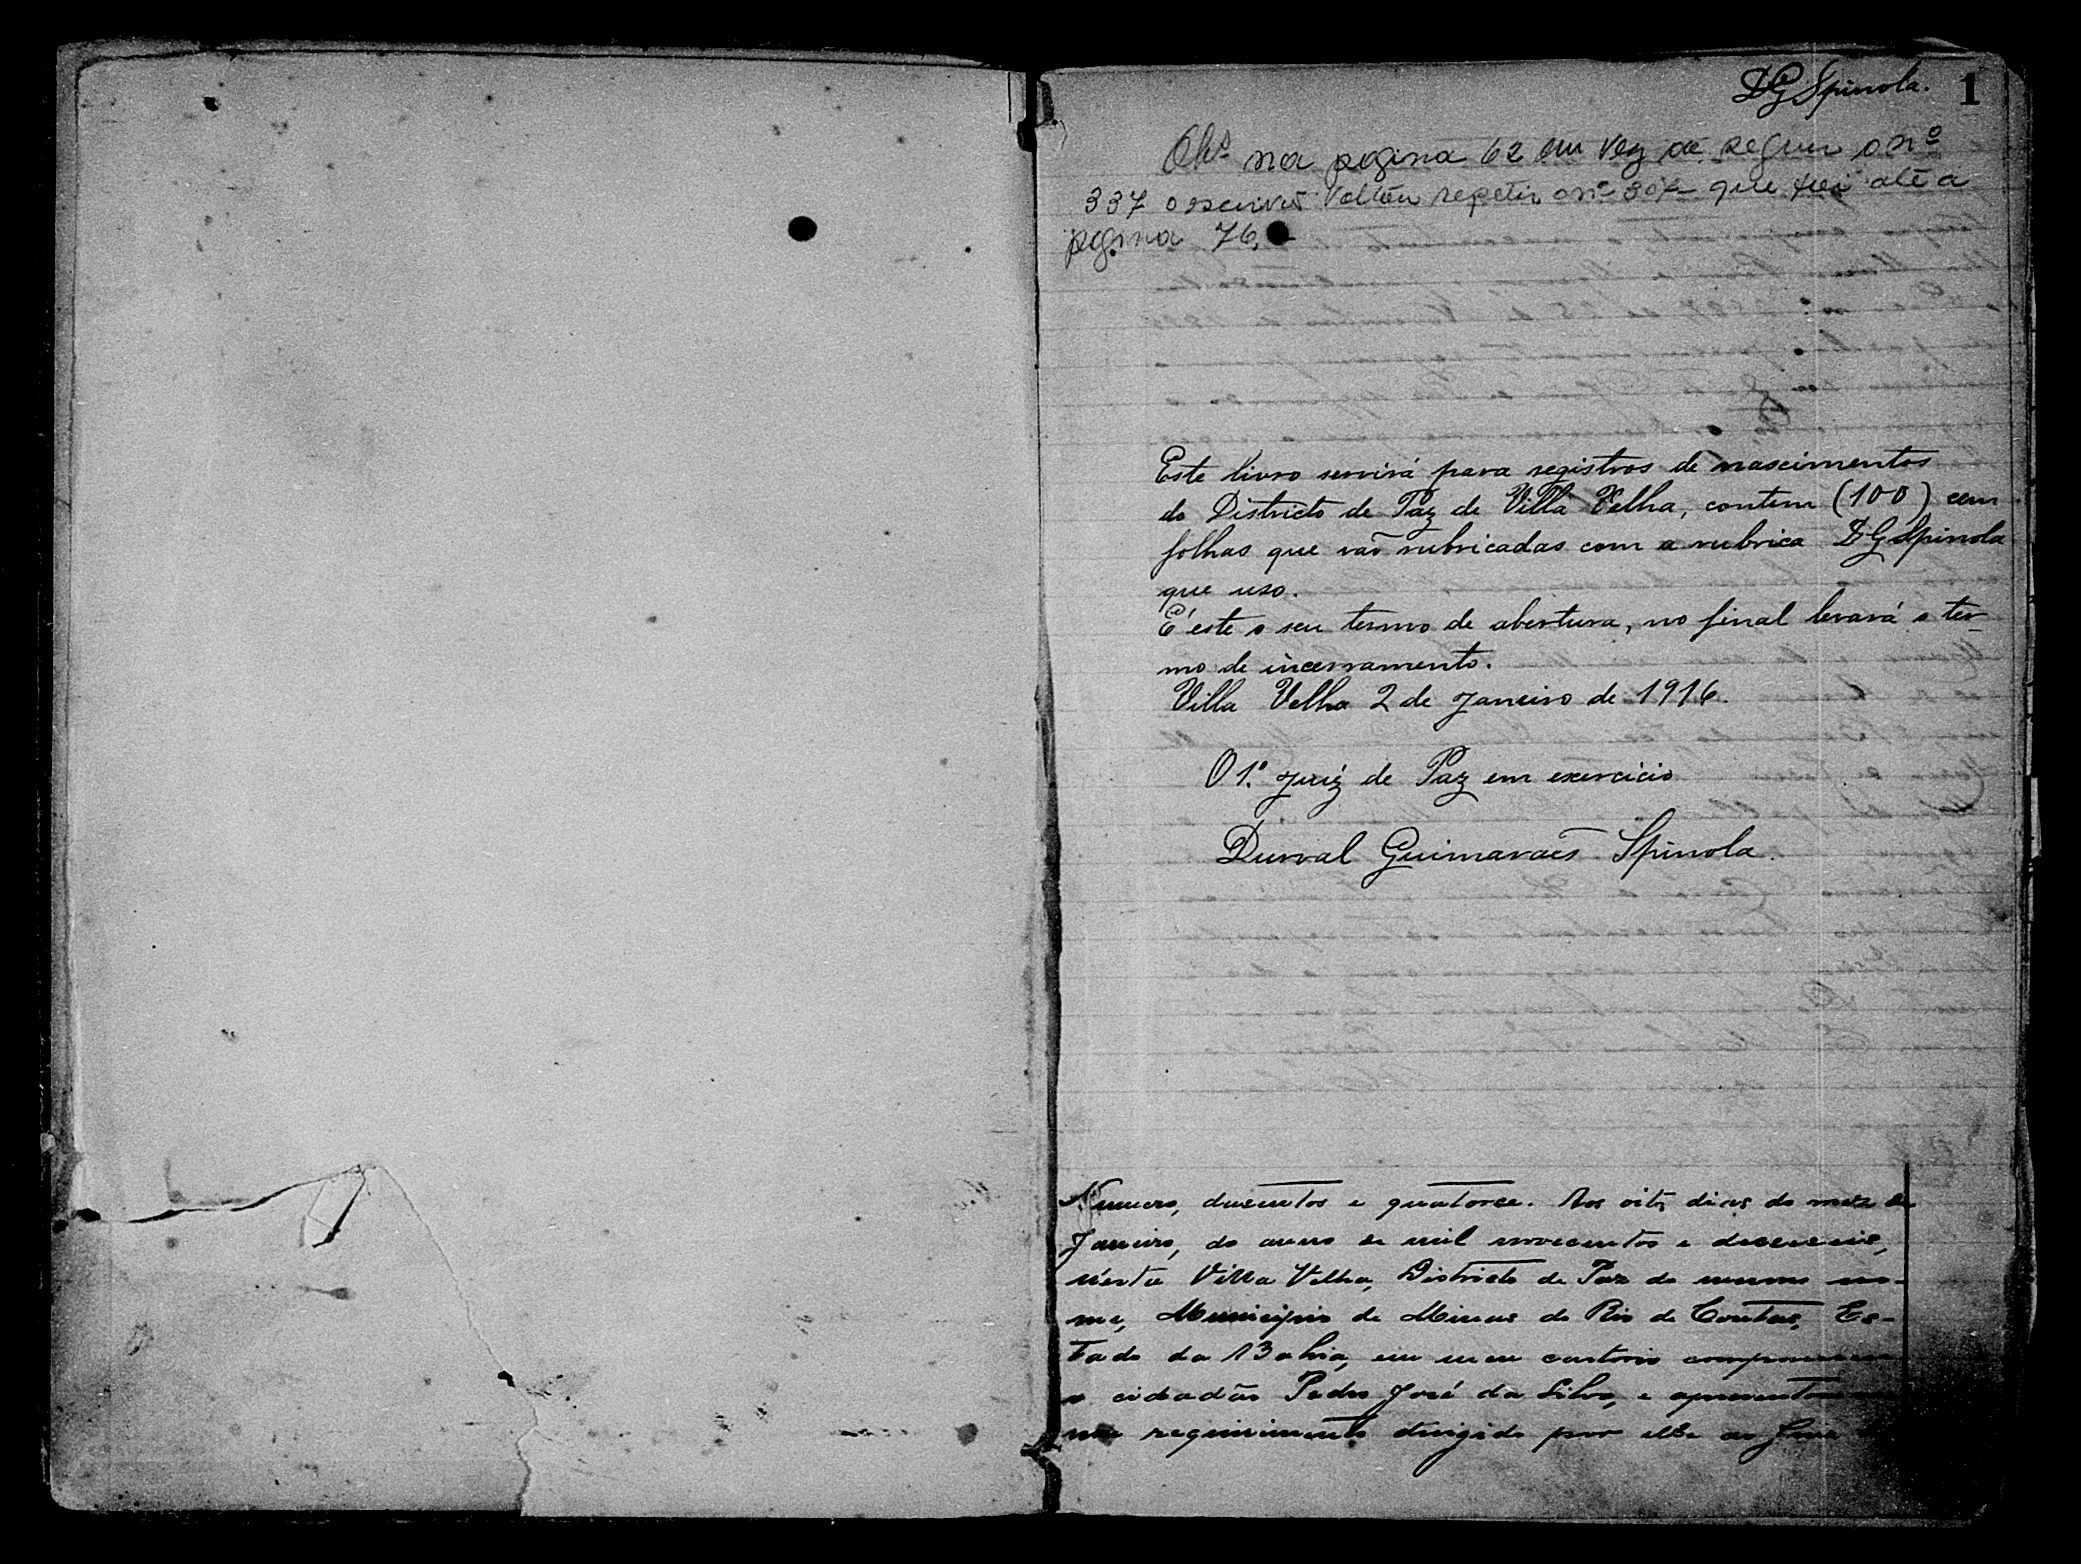 DG Spinola. 1
Obs na pagina 62 em vez de seguir o nº
337 o escrivão voltou repetir o nº 307 que foi até a
pagina 76
Este livro servirá para registros de nascimentos
do Districto de Paz de Villa Velha, contem (100) cem
folhas que vaõ rubricadas com a rubrica DG Spinola
que uso.
É este o seu termo de abertura, no final levará o ter-
mo de incerramento.
Villa Velha 2 de Janeiro de 1916.
O 1º Juiz de Paz em exercicio
Durval Guimaraẽs Spinola.
Numero, dusentos e quatorse. Aos oito dias do mez de
Janeiro, do anno de mil novecentos e deseseis,
n'esta Villa Velha, Districto de Paz do mesmo no-
me, Municipio de Minas do Rio de Contas, Es-
tado da Bahia, em meu cartorio compareceu
o cidadão Pedro José da Silva, e apresentou
me requirimento dirigido por elle ao Juiz